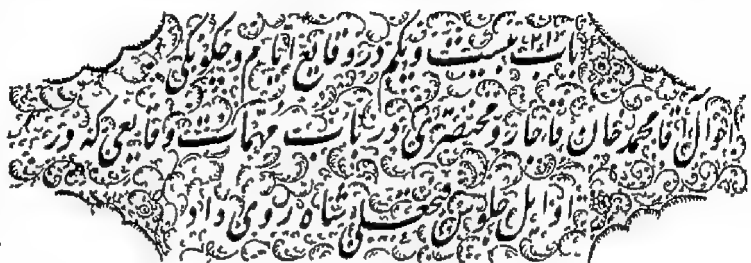 باب بیست و یکم در وقایع ایام و چکونکی
احوال آقا محمد خان قاجار و مختصری در باب مهمات وقایعی که در
اوایل جلوس فتحعلی شاه روی داد